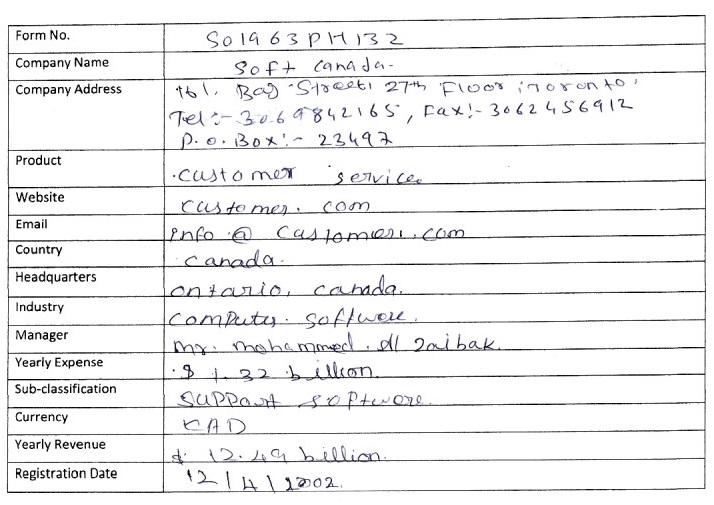 Form No. S01963PH132
Company Name Soft Canada.
Company Address 161, Bay Street, 27th Floor, Toronto,
Tel:- 3069842165, Fax:- 3062456912
P.O.Box:- 23497
Product customer service
Website customer.com
Email info@customer.com
Country Canada.
Headquarters ontario, canada.
Industry computer software.
Manager mr. mohammed. Al zaibak.
Yearly Expense $ 1.32 billion.
Sub-classification support software.
Currency CAD
Yearly Revenue $ 12.49 billion.
Registration Date 12/4/2002.